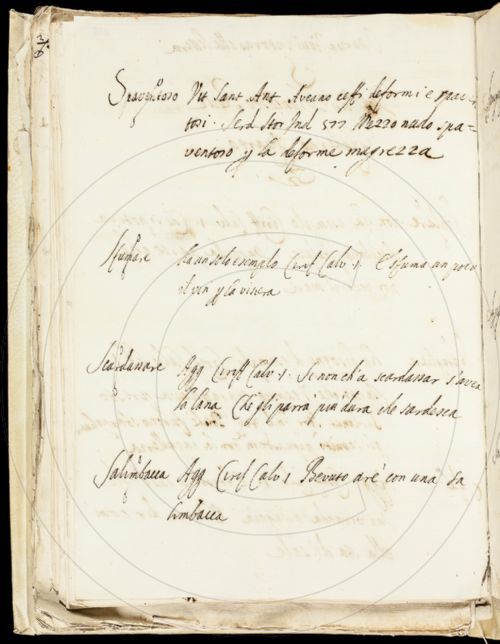 Spaventoso Vit Sant. Ant. Aveano ceffi deformi e spaven-
tosi. Serd Stor Ind 577 Mezzo nudo spa=
ventoso p la deforme magrezza
Sfumare Ha un solo esemplo Ciriff Calv. 1. E sfuma un poco
il vin p la visera
Scardassare Agg Ciriff Calv. 1. Se non ch'a scardassar s'avea
la lana Che gli parrà più dura che sardesca
Salimbacca Agg. Cirif Calv 1 Bevuto are' con una Sa
limbacca